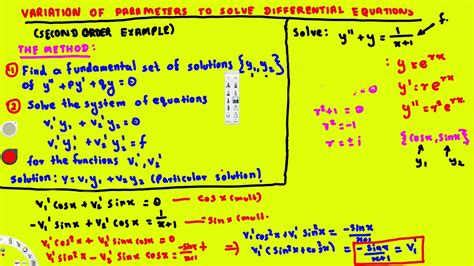 VARIATION OF PARAMETERS TO SOLVE DIFFERENTIAL EQUATIONS
(SECOND ORDER EXAMPLE)
THE METHOD:
① Find a fundamental set of solutions {y₁, y₂}
of y'' + py' + qy = 0
② Solve the system of equations
v₁' y₁ + v₂' y₂ = 0
v₁' y₁' + v₂' y₂' = f
for the functions v₁', v₂'
Solution: y = v₁y₁ + v₂y₂ (Particular solution)
Solve: y'' + y = 1/(x+1)
f.
y = e^rx
y' = re^rx
y'' = r²e^rx
r²+1 = 0
r² = -1
r = ± i
{cosx, sinx}
y₁ y₂
v₁' cosx + v₂' sinx = 0 — cosx (mult)
-v₁' sinx + v₂' cosx = 1/(x+1) — sinx (mult.
v₁' cos²x + v₂' sinx cosx = 0
v₁' sin²x - v₂' sinx cosx = -sinx/(x+1)
⇒ v₁' cos²x + v₁' sin²x = -sinx/(x+1)
v₁' (sin²x + cos²x) = -sinx/(x+1) = v₁'